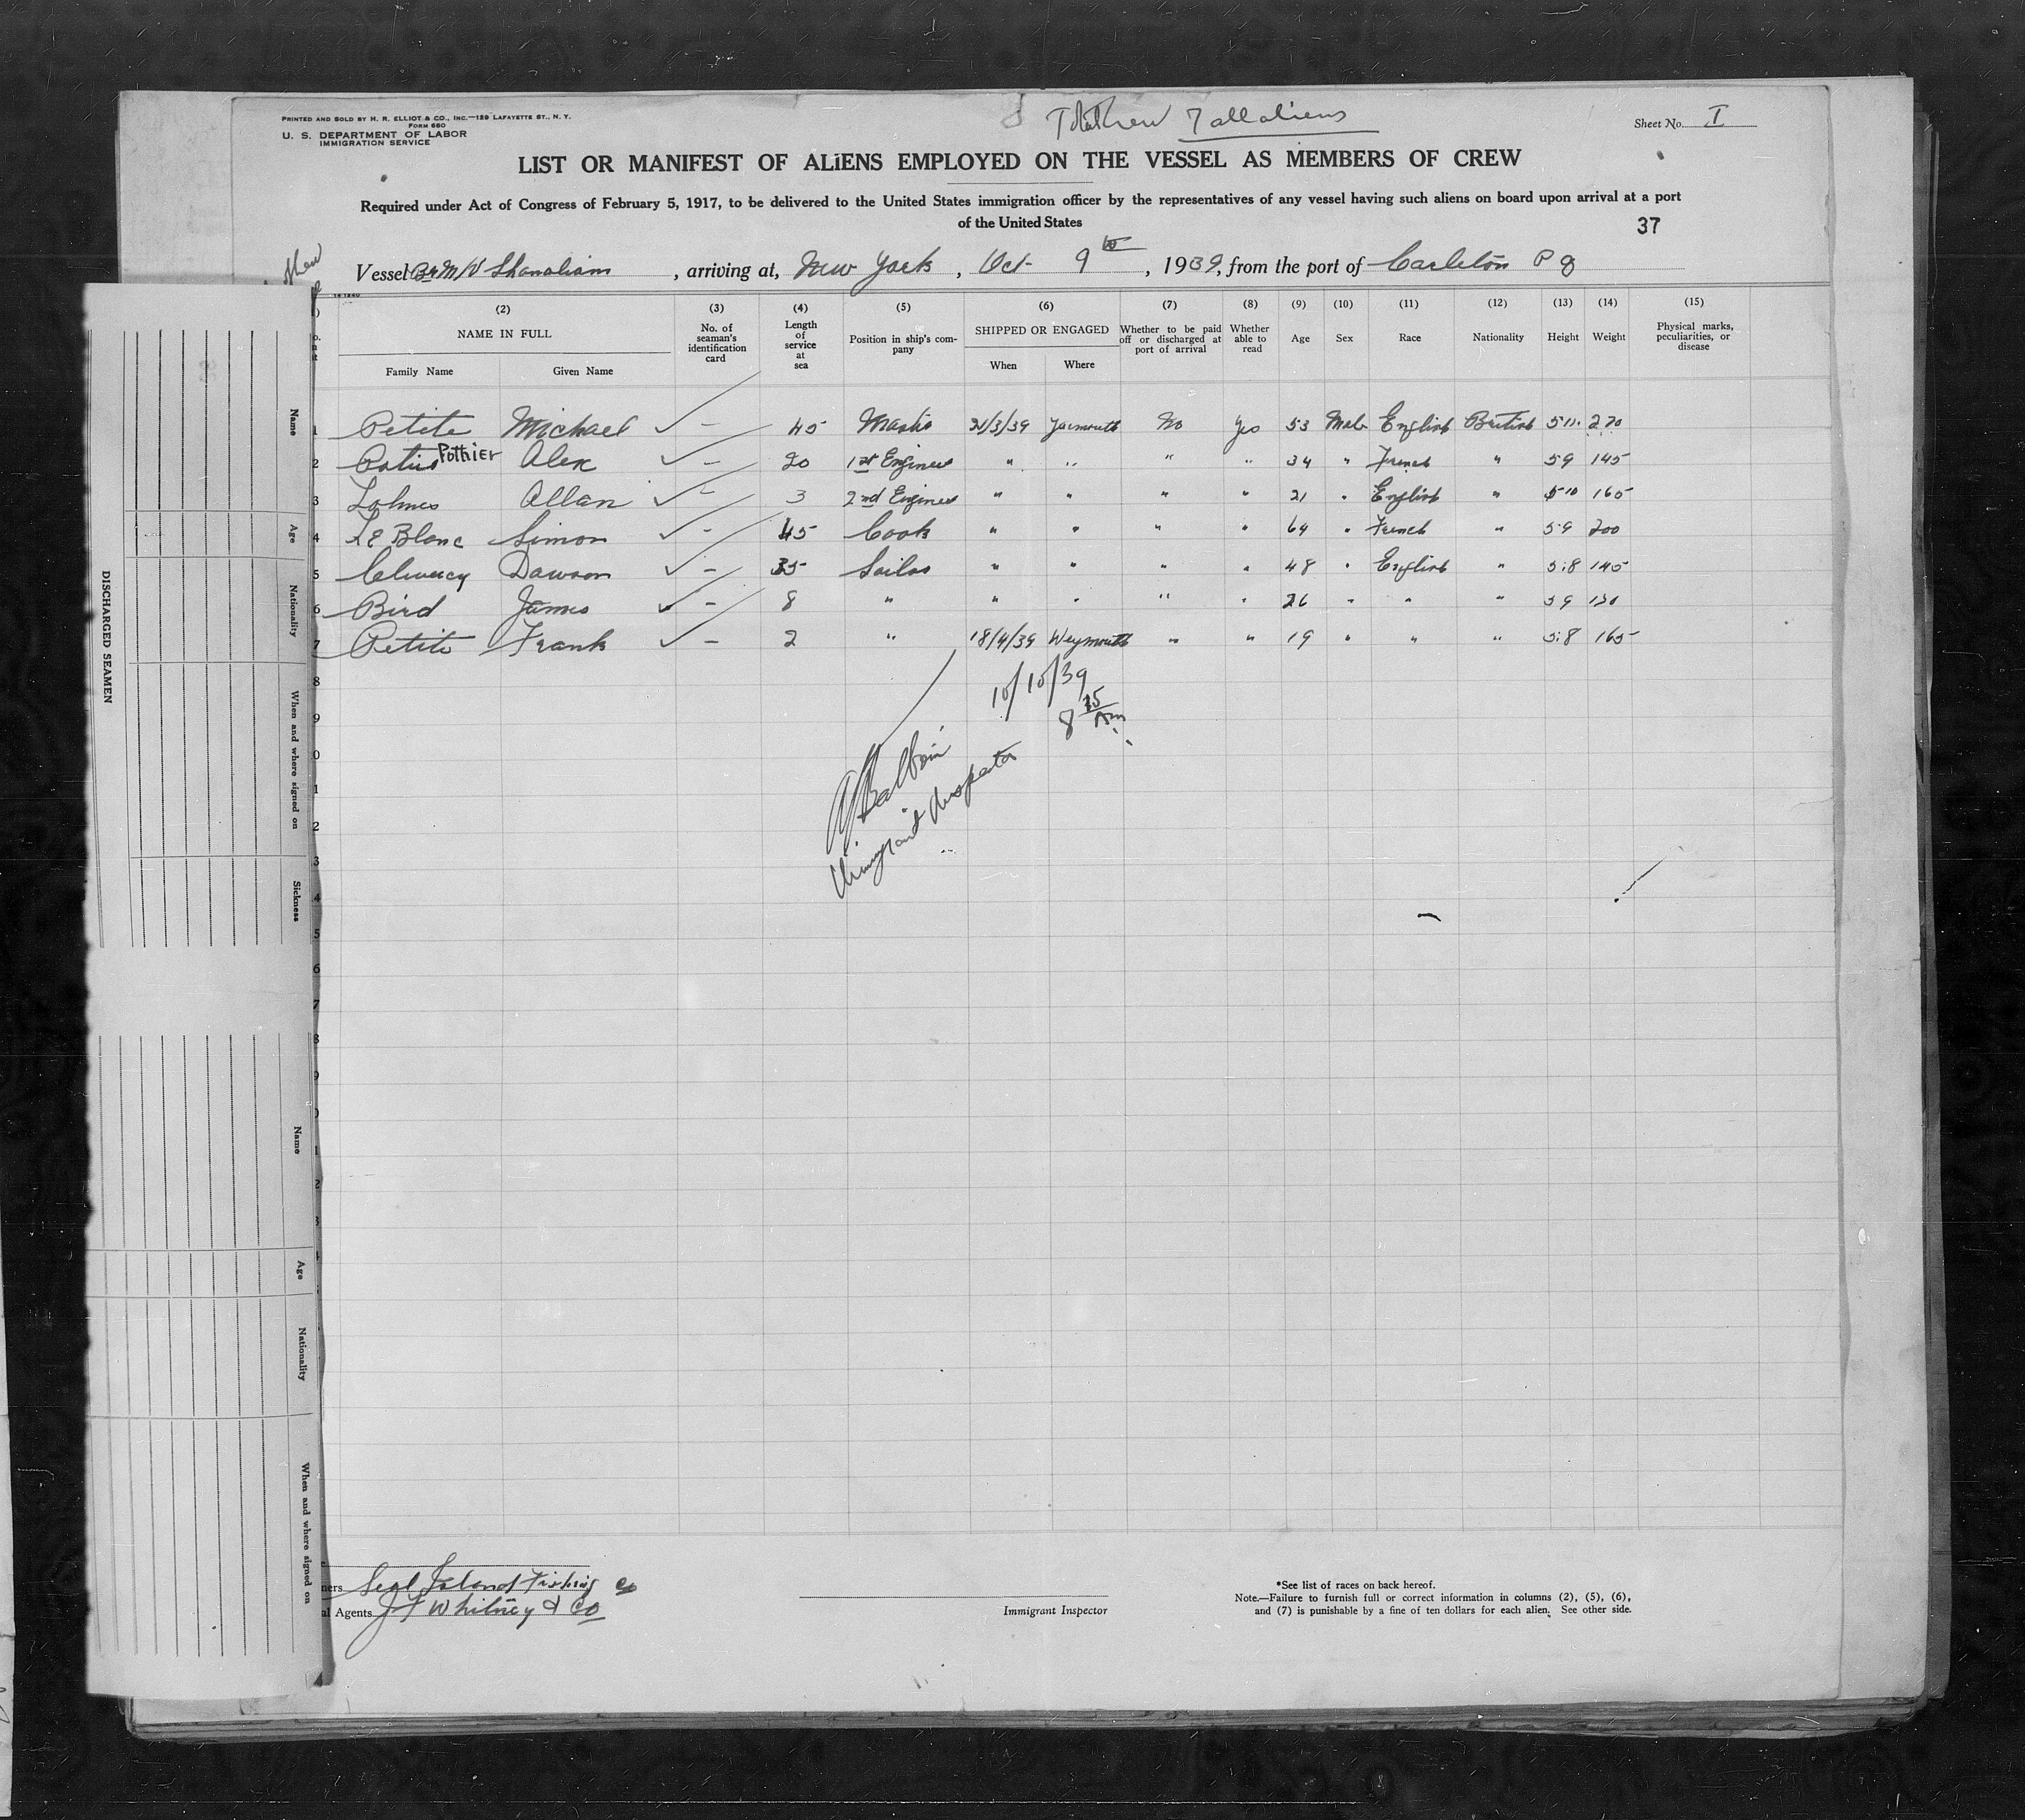 PRINTED AND SOLD BY H. R. ELLIOT & CO., INC.—129 LAFAYETTE ST., N. Y.
FORM 660
U. S. DEPARTMENT OF LABOR
IMMIGRATION SERVICE
Total Crew 7 all aliens
Sheet No. I
LIST OR MANIFEST OF ALIENS EMPLOYED ON THE VESSEL AS MEMBERS OF CREW
Required under Act of Congress of February 5, 1917, to be delivered to the United States immigration officer by the representatives of any vessel having such aliens on board upon arrival at a port
of the United States
37
Vessel Br M/V Shanalian , arriving at, New York , Oct 9th , 1939, from the port of Carleton P Q
(2) (3) (4) (5) (6) (7) (8) (9) (10) (11) (12) (13) (14) (15)
NAME IN FULL No. of seaman's identification card Length of service at sea Position in ship's company SHIPPED OR ENGAGED Whether to be paid off or discharged at port of arrival Whether able to read Age Sex Race Nationality Height Weight Physical marks, peculiarities, or disease
Family Name Given Name When Where
1 Petite Michael ✓ – 45 Master 21/3/39 Yarmouth No Yes 53 Male English British 5 11 220
2 Pothier Alex ✓ – 20 1st Engineer " " " " 34 " French " 5 9 145
3 Lohnes Allan ✓ – 3 2nd Engineer " " " " 21 " English " 5 10 165
4 Le Blanc Simon ✓ – 45 Cook " " " " 64 " French " 5 9 200
5 Dawson ✓ – 35 Sailor " " " " 48 " English " 5:8 145
6 Bird James ✓ – 8 " " " " " 26 " " " 5 9
7 Petite Frank ✓ – 2 " 18/4/39 Weymouth " " 19 " " " 5:8 165
8
9
0
1
2
3
4
5
6
7
8
9
0
1
2
3
10/10/39
8 25 Am
Immigrant Inspector
Seal Island Fishing Co
al Agents J F Whitney & Co
Immigrant Inspector
*See list of races on back hereof.
Note.—Failure to furnish full or correct information in columns (2), (5), (6),
and (7) is punishable by a fine of ten dollars for each alien. See other side.
DISCHARGED SEAMEN
Name
Age
Nationality
When and where signed on
Sickness
Name
Age
Nationality
When and where signed on